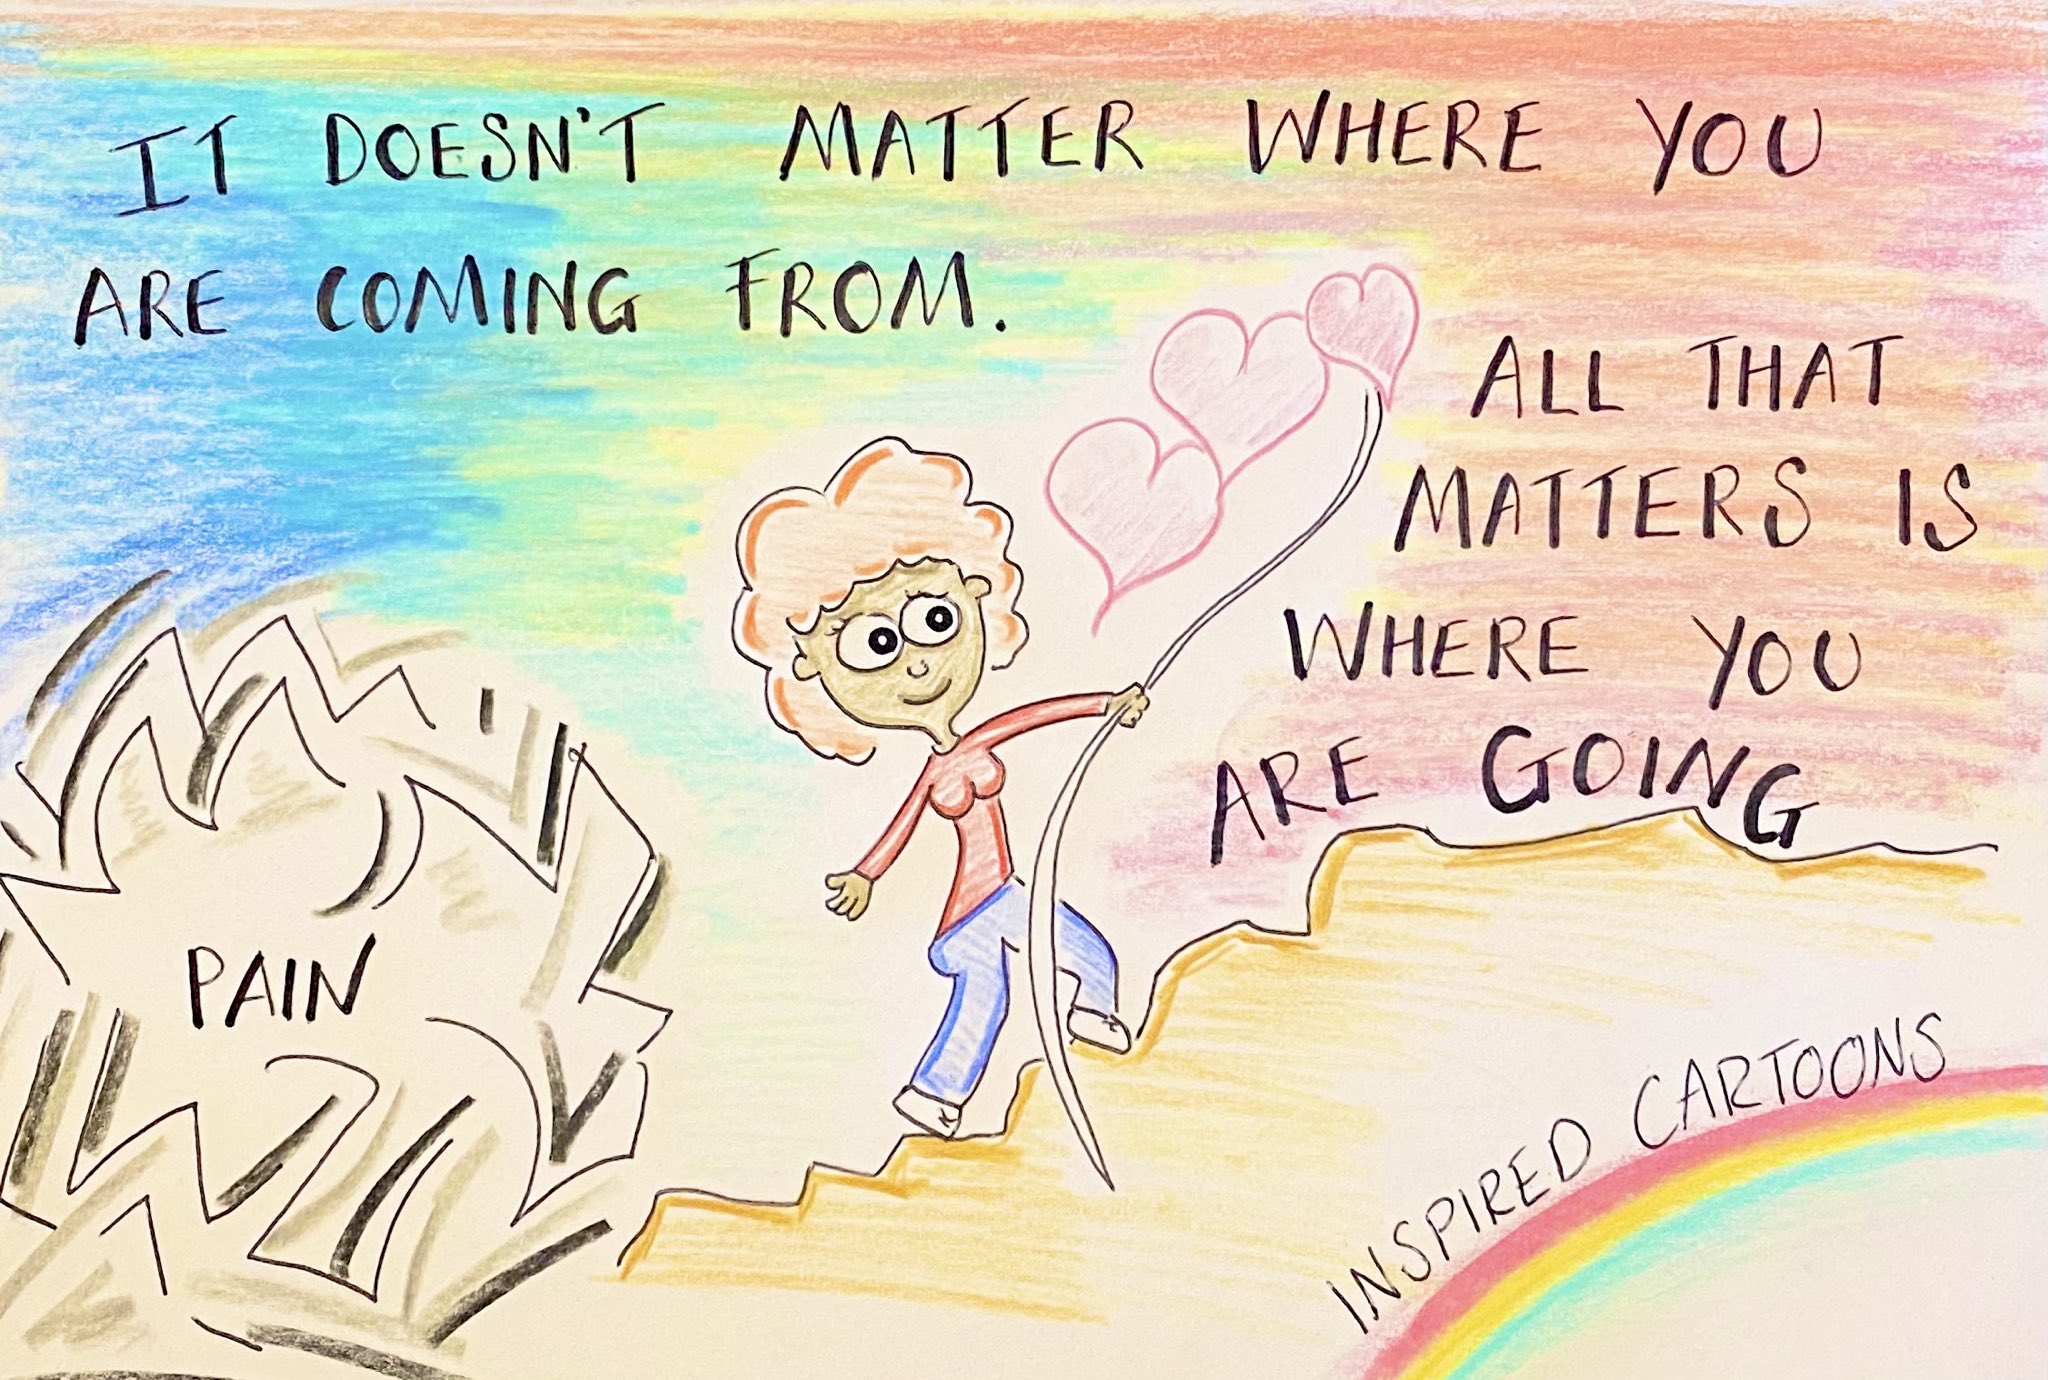 IT DOESN'T MATTER WHERE YOU
ARE COMING FROM.
ALL THAT
MATTERS IS
WHERE YOU
ARE GOING
PAIN
INSPIRED CARTOONS